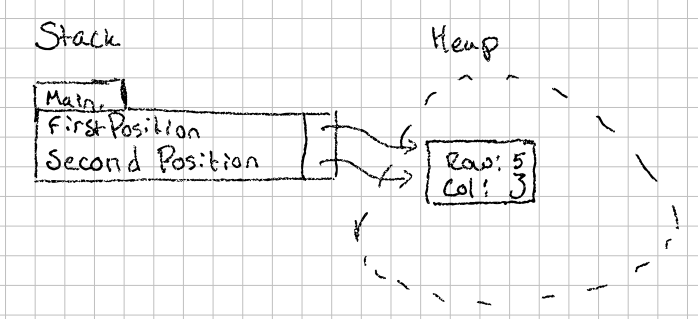 Stack
Heap
Main.
FirstPosition
Second Position
Row: 5
Col: 3